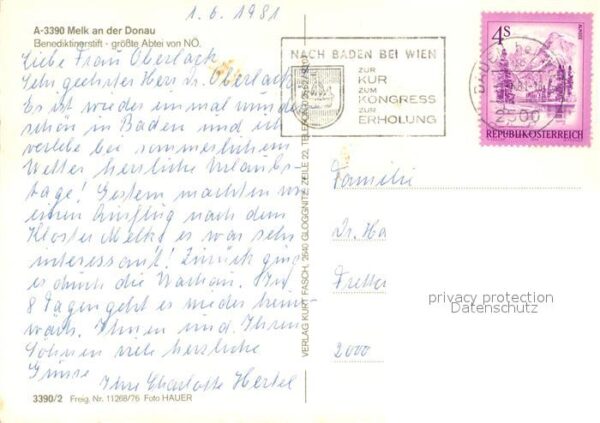 1.6.1981
A-3390 Melk an der Donau
Benediktinerstift - größte Abtei von NÖ.
Liebe Frau Oberlack
Sehr geehrter Herr Dr. Oberlack
Es ist wieder einmal wunder
schön in Baden und ich
verlebe bei sommerlichem
Wetter herrliche Urlaubs-
tage! Gestern machten wir
einen Ausflug nach dem
Kloster Melk, es war sehr
interessant! Zurück ging
es durch die Wachau. In
8 Tagen geht es wieder heim-
wärts. Ihnen und Ihren
Söhnen viele herzliche
Grüsse
Ihre Charlotte Hertel
3390/2 Freig. Nr. 11268/76 Foto HAUER
VERLAG KURT FASCH, 2640 GLOGGNITZ, ZEILE 22, TELEFON
NACH BADEN BEI WIEN
ZUR
KUR
ZUM
KONGRESS
ZUR
ERHOLUNG
BADEN
2500
4S
REPUBLIK ÖSTERREICH
Familie
Dr. Ha
Tretter
2000
privacy protection
Datenschutz